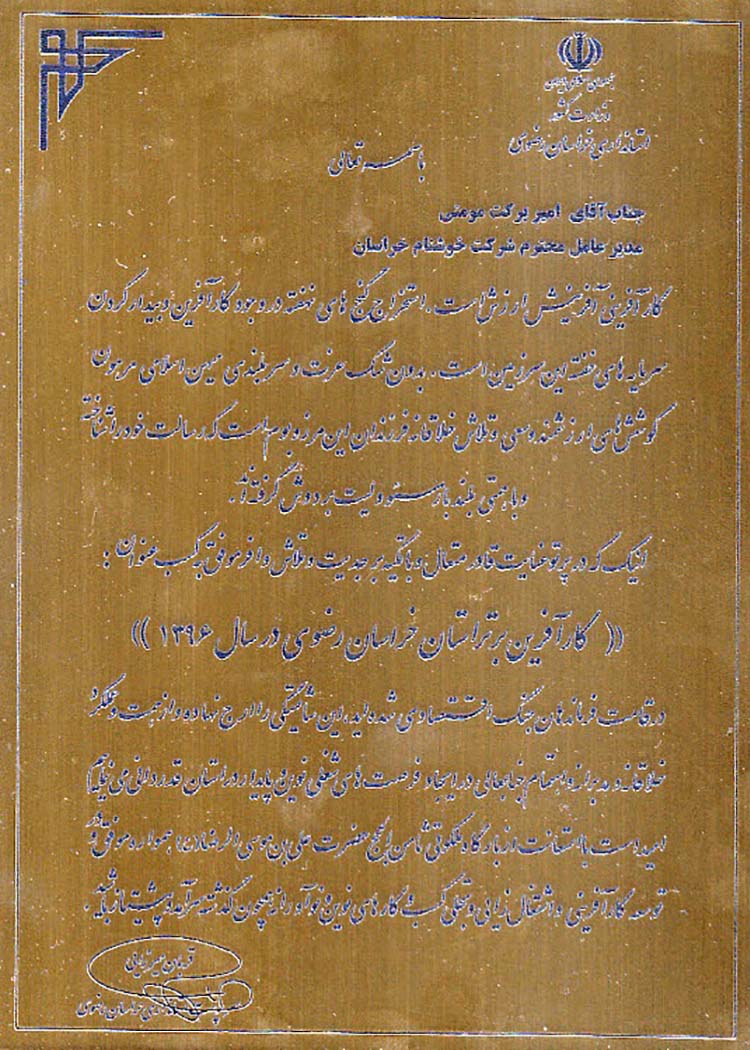 جمهوری اسلامی ایران
وزارت کشور
استانداری خراسان رضوی
باسمه تعالی
جناب آقای امیر برکت مومنی
مدیر عامل محترم شرکت خوشنام خراسان
کارآفرینی آفرینش ارزش است. استخراج گنج های نهفته در وجود کارآفرین و بیدار کردن
سرمایه های خفته این سرزمین است. بدون شک عزت و سربلندی میهن اسلامی مرهون
کوشش های ارزشمند و سعی و تلاش خلاقانه فرزندان این مرز و بوم است که رسالت خود را شناخته
و با همتی بلند بار مسئولیت بر دوش گرفته اند.
اینک که در پرتو عنایت قادر متعال و با تکیه بر جدیت و تلاش وافر موفق به کسب عنوان :
(( کارآفرین برتر استان خراسان رضوی در سال ۱۳۹۶ ))
در قامت فرماندهان جنگ اقتصادی شده اید، این شایستگی را ارج نهاده و از همت و عملکرد
خلاقانه، مدبرانه و اهتمام جنابعالی در ایجاد فرصت های شغلی نوین و پایدار در استان قدردانی می نمایم
امید است با استعانت از بارگاه ملکوتی ثامن الحجج حضرت علی بن موسی الرضا(ع) همواره موفق و در
توسعه کارآفرینی و اشتغال زایی و تجلی کسب و کارهای نوین و نوآورانه همچون گذشته سرآمد و پیشتاز باشید.
خراسان رضوی